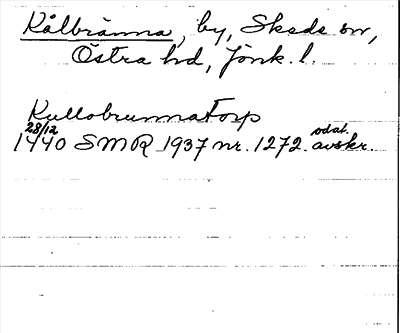 Kålbränna, by, Skeds sn,
Östra hd, Jönk. l.
Kullobrunnatorp
28/12 odat.
1440 SMR 1937 nr. 1272. avskr.